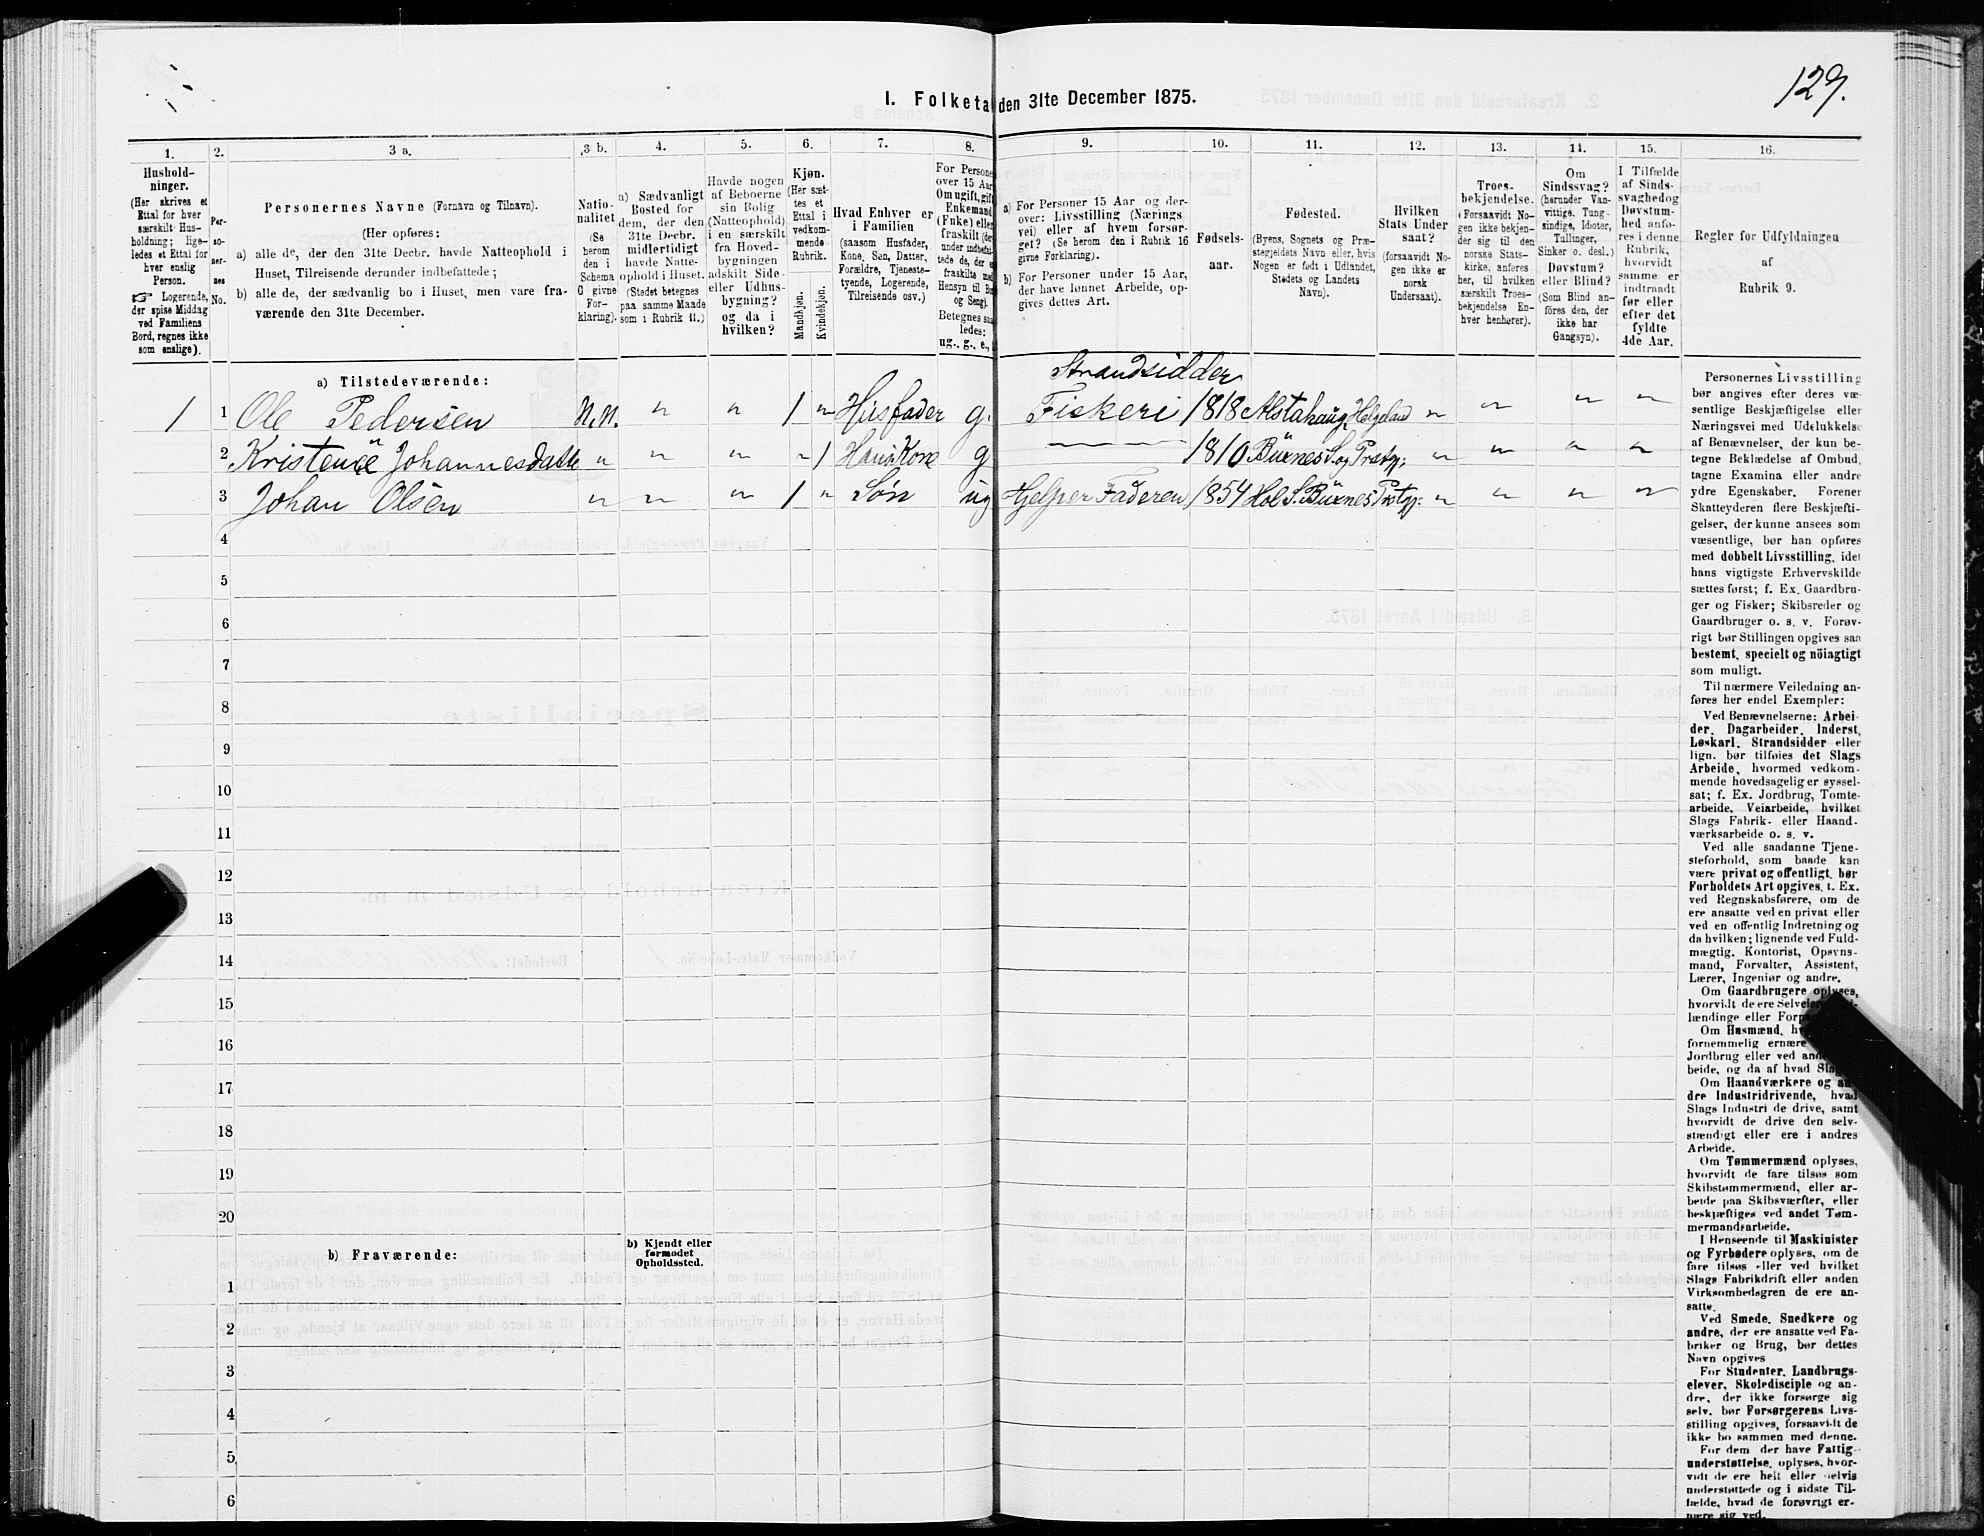 129.
I. Folketa den 31te December 1875.
1. 2. 3 a. 3 b. 4. 5. 6. 7. 8. 9. 10. 11. 12. 13. 14. 15. 16.
Hushold-
ninger.
(Her skrives et
Ettal for hver
særskilt Hus-
holdning; lige-
ledes et Ettal for
hver enslig
Person.
☞ Logerende,
der spise Middag
ved Familiens
Bord, regnes ikke
som enslige).
Per-
so-
ner-
nes
No.
Personernes Navne (Fornavn og Tilnavn).
(Her opføres:
a) alle de, der den 31te Decbr. havde Natteophold i
Huset, Tilreisende derunder indbefattede;
b) alle de, der sædvanlig bo i Huset, men vare fra-
værende den 31te December.
Natio-
nalitet
(Se
herom
den i
Schema
C givne
For-
klaring).
a) Sædvanligt
Bosted for
dem, der den
31te Decbr.
midlertidigt
havde Natte-
ophold i Huset.
(Stedet betegnes
paa samme Maade
som i Rubrik 11.)
Havde nogen
af Beboerne
sin Bolig
(Natteophold)
i en særskilt
fra Hoved-
bygningen
adskilt Side-
eller Udhus-
bygning?
og da i
hvilken?
Kjøn.
(Her sæt-
tes et
Ettal i
vedkom-
mende
Rubrik.
Mandkjøn.
Kvindekjøn.
Hvad Enhver er
i Familien
(saasom Husfader,
Kone, Søn, Datter,
Forældre, Tjeneste-
tyende, Logerende,
Tilreisende osv.)
For Persone
over 15 Aar
Om ugift, gift
Enkemand
(Enke) eller
fraskilt (der
under indbefat-
tede de, der e
fraskilte med
Hensyn til Bo
og Seng).
Betegnes saa
ledes:
ug., g., e.,
a) For Personer 15 Aar og der-
over: Livsstilling (Nærings
vei) eller af hvem forsør-
get? (Se herom den i Rubrik 16
givne Forklaring).
b) For Personer under 15 Aar,
der have lønnet Arbeide, op-
gives dettes Art.
Fødsels-
aar.
Fødested.
(Byens, Sognets og Præ-
stegjeldets Navn eller, hvis
Nogen er født i Udlandet,
Stedets og Landets
Navn).
Hvilken
Stats Under
saat?
(forsaavidt No-
gen ikke er
norsk
Undersaat).
Troes-
bekjendelse.
(Forsaavidt No-
gen ikke bekjen-
der sig til den
norske Stats-
kirke, anføres
her, til hvilken
særskilt Troes-
bekjendelse En-
hver henhører).
Om
Sindssvag?
(herunder Van-
vittige, Tung-
sindige, Idioter,
Tullinger,
Sinker o. desl.)
Døvstum?
eller Blind?
(Som Blind an-
føres den, der
ikke har
Gangsyn).
I Tilfælde
af Sinds-
svaghed og
Døvstum-
hed anfø-
res i denne
Rubrik,
hvorvidt
samme er
indtraadt
før eller
efter det
fyldte
4de Aar.
Regler for Udfyldningen
af
Rubrik 9.
a) Tilstedeværende:
Strandsidder
1 1 Ole Pedersen N.N. " " 1 " Husfader g. Fiskeri 1818 Alstahaug, " " " "
2 Johannesdatte " " " " 1 g — 1810 " " " "
3 Johan Olsen " " " 1 " Søn ug Hjelper Faderen 1854 " " " "
4
5
6
7
8
9
10
11
12
13
14
15
16
17
18
19
20
b) Fraværende:
b) Kjendt eller
formodet
Opholdssted.
1
2
3
4
5
6
Personernes Livsstilling
bør angives efter deres væ-
sentlige Beskjæftigelse eller
Næringsvei med Udelukkelse
af Benævnelser, der kun be-
tegne Beklædelse af Ombud,
tagne Examina eller andre
ydre Egenskaber. Forener
Skatteyderen flere Beskjæfti-
gelser, der kunne ansees som
væsentlige, bør han opføres
med dobbelt Livsstilling, idet
hans vigtigste Erhvervskilde
sættes først; f. Ex. Gaardbru-
ger og Fisker; Skibsreder og
Gaardbruger o. s. v. Forøv-
rigt bør Stillingen opgives saa
bestemt, specielt og nöiagtigt
som muligt.
Til nærmere Veiledning an-
føres her endel Exempler:
Ved Benævnelserne: Arbei-
der, Dagarbeider, Inderst,
Løskarl, Strandsidder eller
lign. bør tilføies det Slags
Arbeide, hvormed vedkom-
mende hovedsagelig er syssel-
sat; f. Ex. Jordbrug, Tomte-
arbeide, Veiarbeide, hvilket
Slags Fabrik- eller Haand-
værksarbeide o. s. v.
Ved alle saadanne Tjene-
steforhold, som baade kan
være privat og offentligt, bør
Forholdets Art opgives, t. Ex.
ved Regnskabsførere, om de
ere ansatte ved en privat eller
ved en offentlig Indretning og
da hvilken; lignende ved Fuld-
mægtig, Kontorist, Opsyns-
mand, Forvalter, Assistent,
Lærer, Ingeniør og andre.
Om Gaardbrugere oplyses,
hvorvidt de ere
lændinge eller
Om Husmænd,
fornemmelig ernære
Jordbrug eller ved
beide, og da af hvad
Om Haandværkere og an-
dre Industridrivende, hvad
Slags Industri de drive, samt
hvorvidt de drive den selv-
stændigt eller ere i andres
Arbeide.
Om Tømmermænd oplyses,
hvorvidt de fare tilsøs som
Skibstømmermænd, eller ar-
beide paa Skibsværfter, eller
beskjæftiges ved andet Tøm-
mermandsarbeide.
I Henseende til Maskinister
og Fyrbødere oplyses, om de
fare tilsøs eller ved hvilket
Slags Fabrikdrift eller anden
Virksomhedsgren de ere an-
satte.
Ved Smede, Snedkere og
andre, der ere ansatte ved Fa-
briker og Brug, bør dettes
Navn opgives
For Studenter, Landbrugs-
elever, Skoledisciple og an-
dre, der ikke forsørge sig
selv, bør Forsørgerens Livs-
stilling opgives, forsaavidt de
ikke bo sammen med denne.
For dem der have Fattig-
understøttelse, oplyses, hvor-
vidt de ere helt eller delvis
understøttede og i sidste Til-
fælde, hvad de forøvrigt er-
nære sig ved.